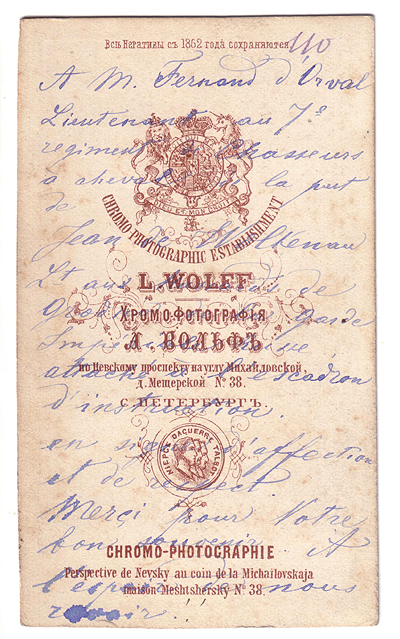 Всѣ Негативы съ 1862 года сохраняются
110
A M. Fernand d'Orval
Lieutenant au 7e
regiment de Chasseurs
a cheval de la part
de
DIEU ET MON DROIT
CHROMO-PHOTOGRAPHIC ESTABLISHMENT
Jean de
L. WOLFF
Lt aux de
ХРОМО-ФОТОГРАФІЯ
Garde
А. ВОЛЬФЪ
Impériale
по Невскому проспекту на углу Михайловской,
attaché à l'escadron
д. Мещерской № 38.
С. ПЕТЕРБУРГЪ.
d'instruction.
NIEPCE DAGUERRE TALBOT
en signe d'affection
et de respect.
Merçi pour Votre
bon souvenir. A
CHROMO-PHOTOGRAPHIE
Perspective de Nevsky au coin de la Michaïlovskaja
maison Meshtshersky № 38.
l'espoir de nous
revoir!